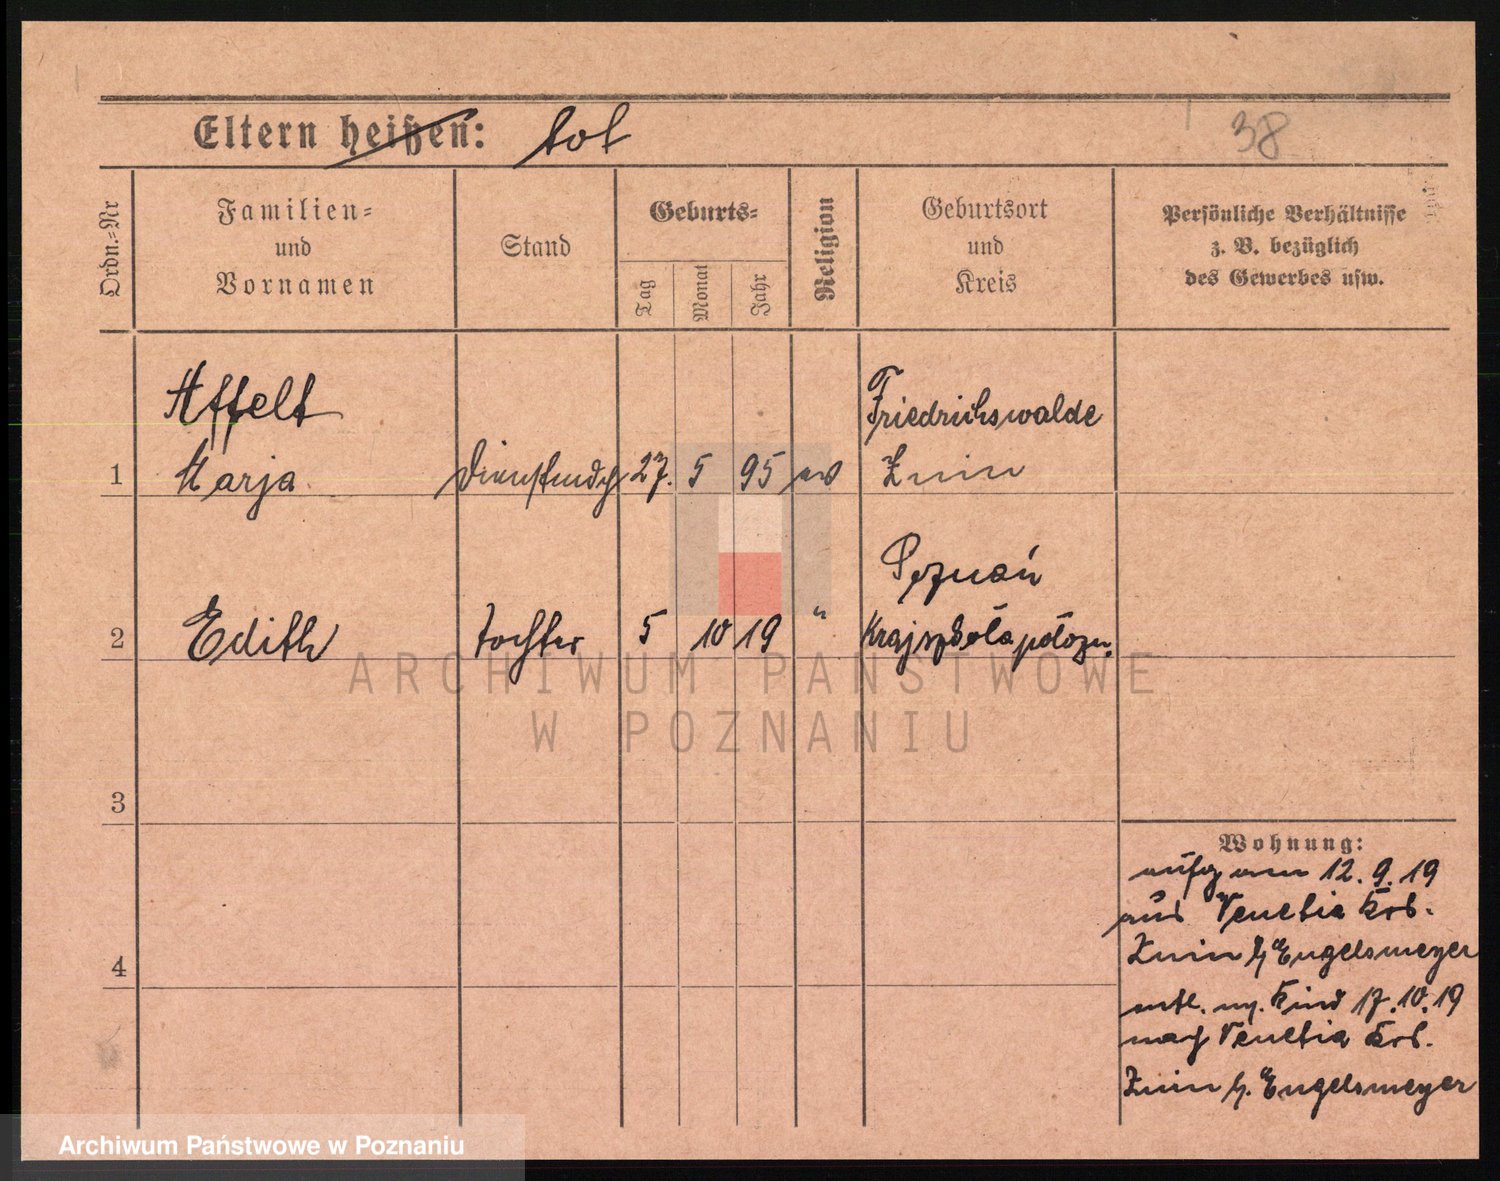 Eltern heißen: tot
38
Ordn.=Nr
Familien=
und
Vornamen
Stand
Geburts=
Tag
Monat
Jahr
Religion
Geburtsort
und
Kreis
Persönliche Verhältnisse
z. B. bezüglich
des Gewerbes usw.
Affelt
Friedrichswalde
1 Marja Dienstmdch 27. 5 95 ev Znin
Poznań
2 Edith Tochter 5 10 19 " Kraj szkoła położn.
3
4
Wohnung:
aufg am 12.9.19
aus Venetia Krs.
Znin b/ Engelsmeyer
entl. m. Kind 17.10.19
nach Venetia Krs.
Znin b/. Engelsmeyer
ARCHIWUM PAŃSTWOWE
W POZNANIU
Archiwum Państwowe w Poznaniu